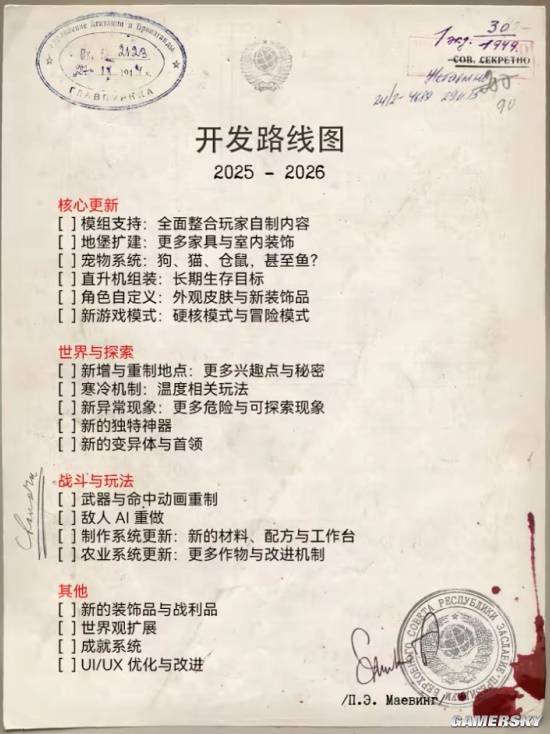 30
1 экз.
1949
СОВ. СЕКРЕТНО
2123
ГЛАВПУРККА
开发路线图
2025 - 2026
核心更新
[ ] 模组支持：全面整合玩家自制内容
[ ] 地堡扩建：更多家具与室内装饰
[ ] 宠物系统：狗、猫、仓鼠，甚至鱼？
[ ] 直升机组装：长期生存目标
[ ] 角色自定义：外观皮肤与新装饰品
[ ] 新游戏模式：硬核模式与冒险模式
世界与探索
[ ] 新增与重制地点：更多兴趣点与秘密
[ ] 寒冷机制：温度相关玩法
[ ] 新异常现象：更多危险与可探索现象
[ ] 新的独特神器
[ ] 新的变异体与首领
战斗与玩法
[ ] 武器与命中动画重制
[ ] 敌人 AI 重做
[ ] 制作系统更新：新的材料、配方与工作台
[ ] 农业系统更新：更多作物与改进机制
其他
[ ] 新的装饰品与战利品
[ ] 世界观扩展
[ ] 成就系统
[ ] UI/UX 优化与改进
/П.Э. Маевинг/
GAMERSKY